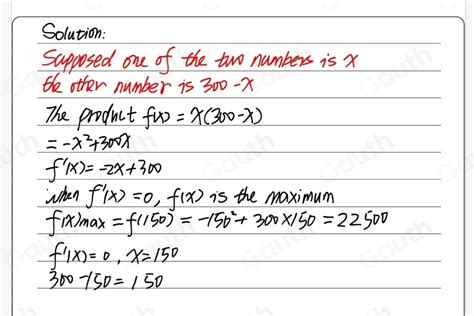 Solution:
Supposed one of the two numbers is x
the other number is 300-x
The product f(x) = x(300-x)
= -x²+300x
f'(x)= -2x+300
when f'(x) =0, f(x) is the maximum
f(x)max = f(150) = -150²+ 300×150 = 22500
f'(x)= 0, x=150
300-150= 150